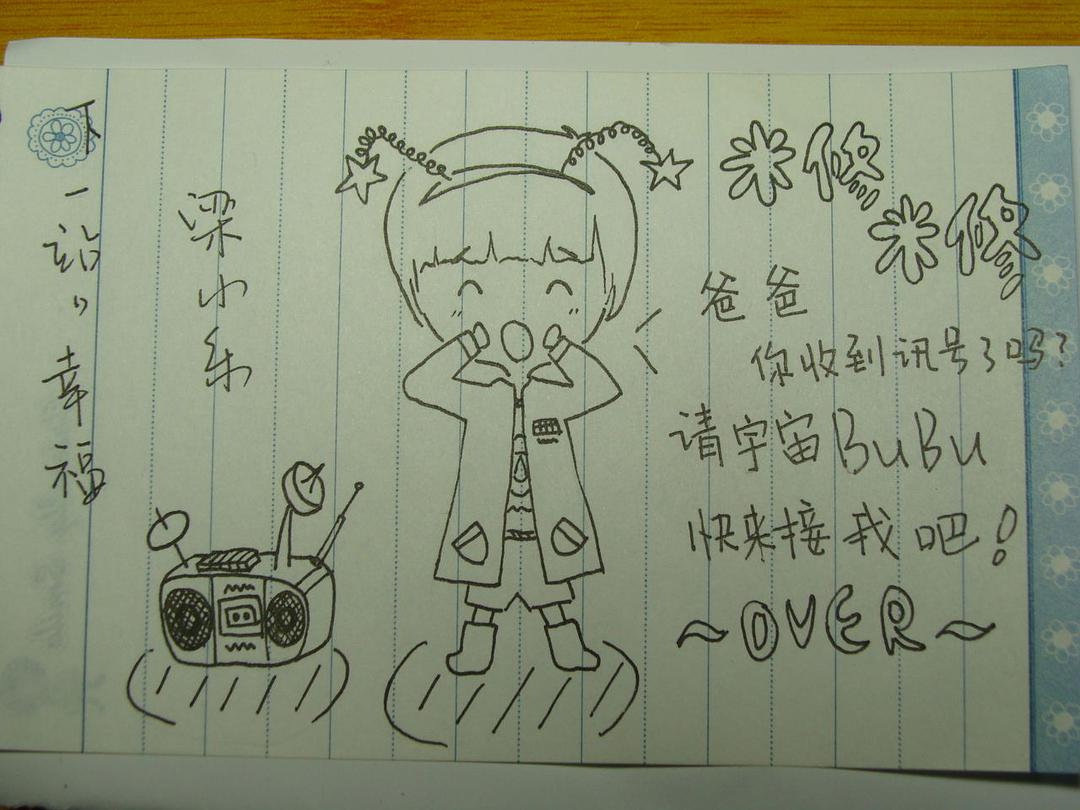 下一站，幸福
梁小乐
米修
米修
爸爸
你收到讯号了吗?
请宇宙BuBu
快来接我吧!
~OVER~